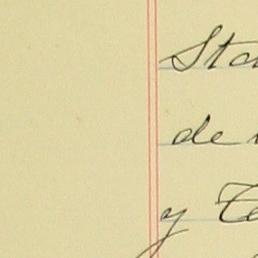 Sta
de
y Te